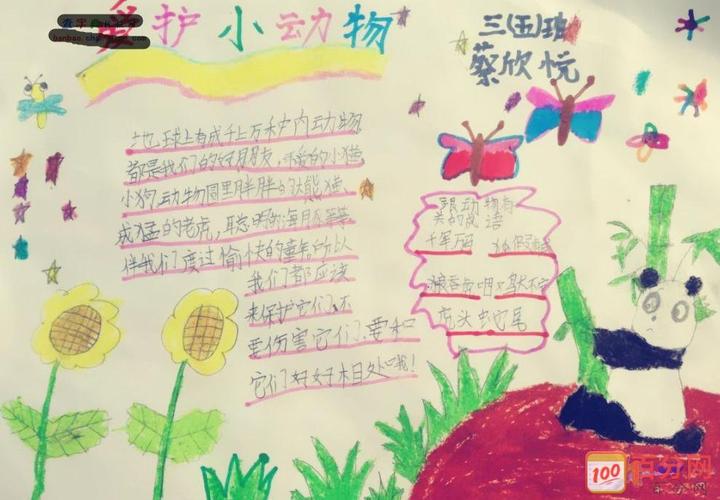 爱护小动物
三(五)班
蔡欣悦
地球上有成千上万种动物
都是我们的好朋友,可爱的小猫
小狗动物园里胖胖的大熊猫、
威猛的老虎,聪明的海豚等等
伴我们度过愉快的童年所以
我们都应该
来保护它们,不
要伤害它们,要和
它们好好相处哦!
跟动物有
关的成语
千军万马 狐假虎威
狼吞虎咽 鸡犬不宁
虎头蛇尾
百分网